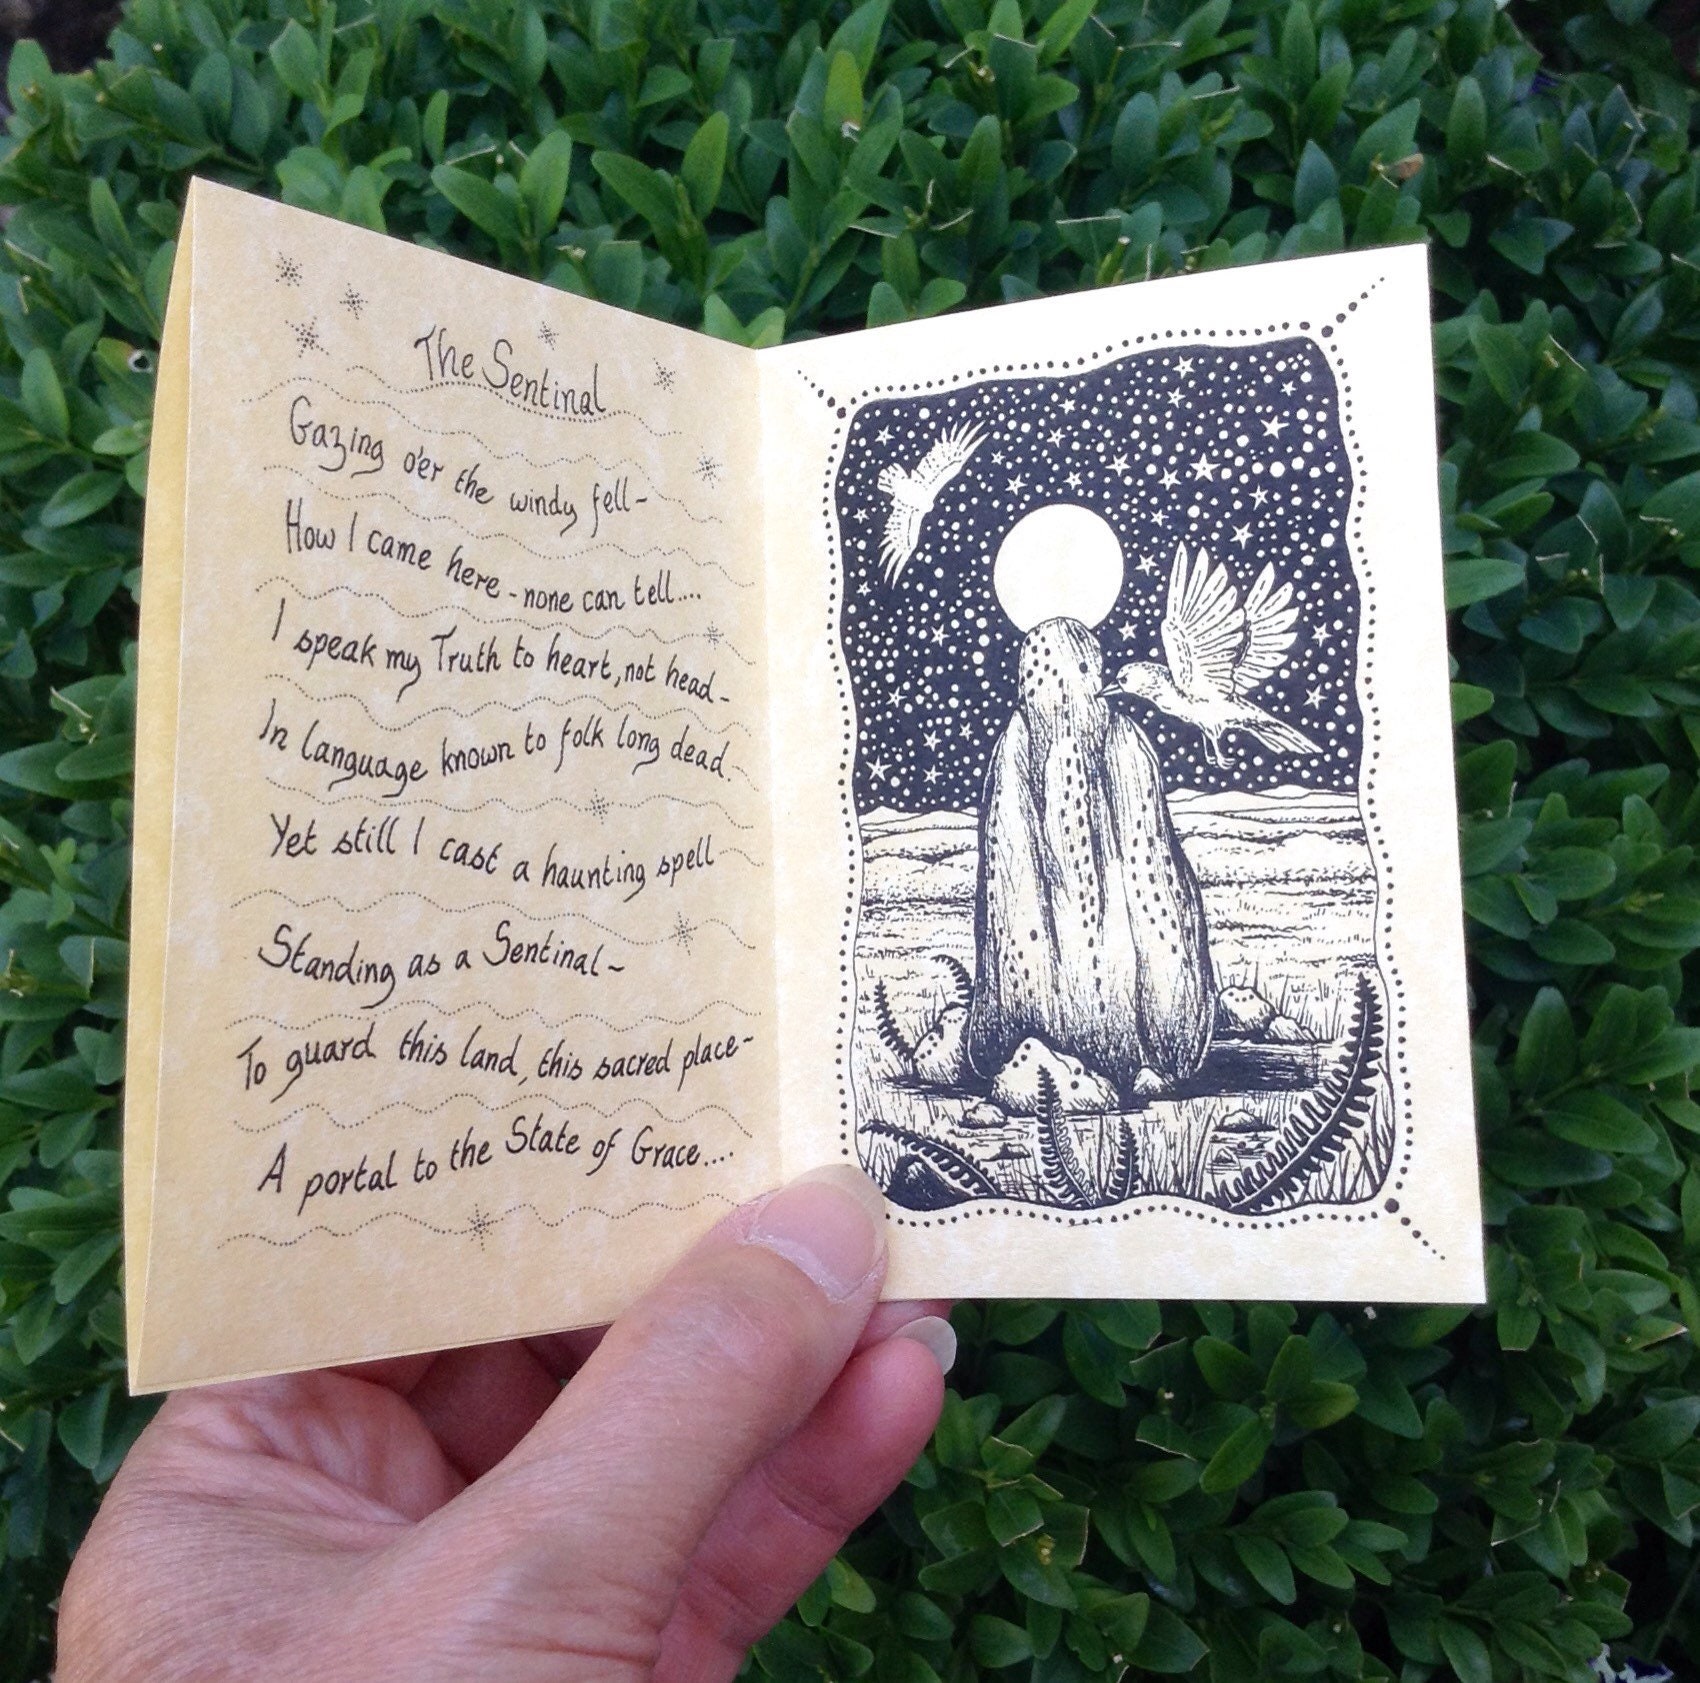 The Sentinal
Gazing o'er the windy fell~
How I came here - none can tell....
I speak my Truth to heart, not head~
In language known to folk long dead.
Yet still I cast a haunting spell
Standing as a Sentinal~
To guard this land, this sacred place~
A portal to the State of Grace....